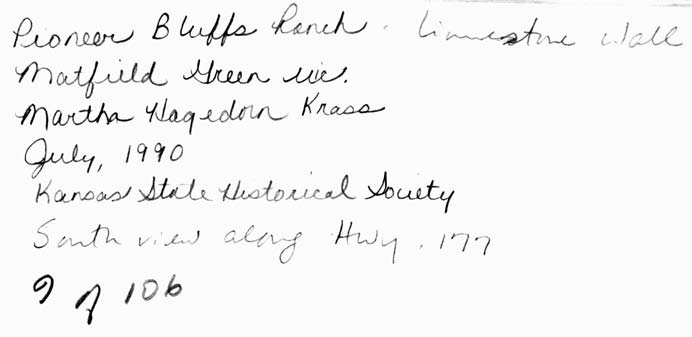 Pioneer Bluffs Ranch - Limestone Wall
Matfield Green vic.
Martha Hagedorn Krass
July, 1990
Kansas State Historical Society
South view along Hwy. 177
9 of 106